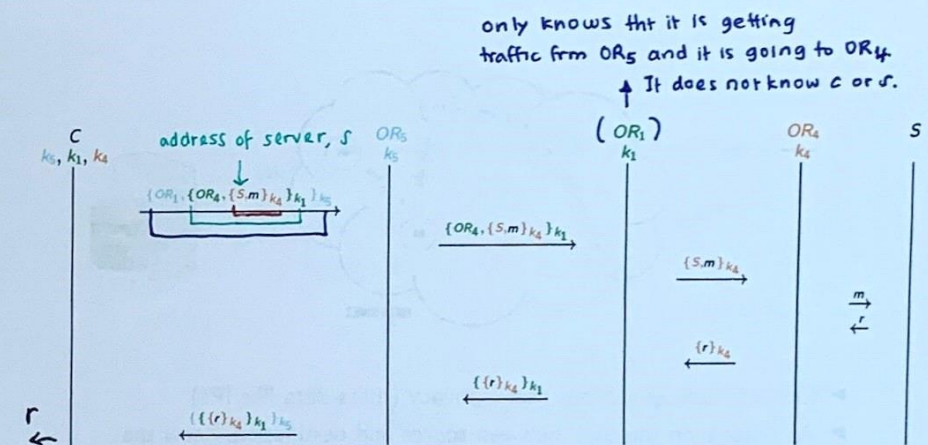 only knows tht it is getting
traffic frm OR₅ and it is going to OR₄.
It does not know c or s.
C
k₅, k₁, k₄
address of server, s
OR₅
k₅
(OR₁)
k₁
OR₄
k₄
S
{OR₁, {OR₄, {S,m}k₄}k₁}k₅
{OR₄, {S,m}k₄}k₁
{S,m}k₄
m
r
{r}k₄
{{r}k₄}k₁
{{{r}k₄}k₁}k₅
r